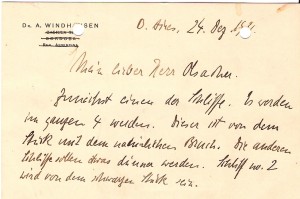 DR. A. WINDHAUSEN
B. Aires, 24. Dez. 19
Mein lieber Herr
Zunächst einen der Schliffe. Es werden
im ganzen 4 werden. Dieser ist von dem
Stück mit dem natürlichen Bruch. Die anderen
Schliffe sollen etwas dünner werden. Schliff no. 2
wird von dem schwarzen Stück sein.